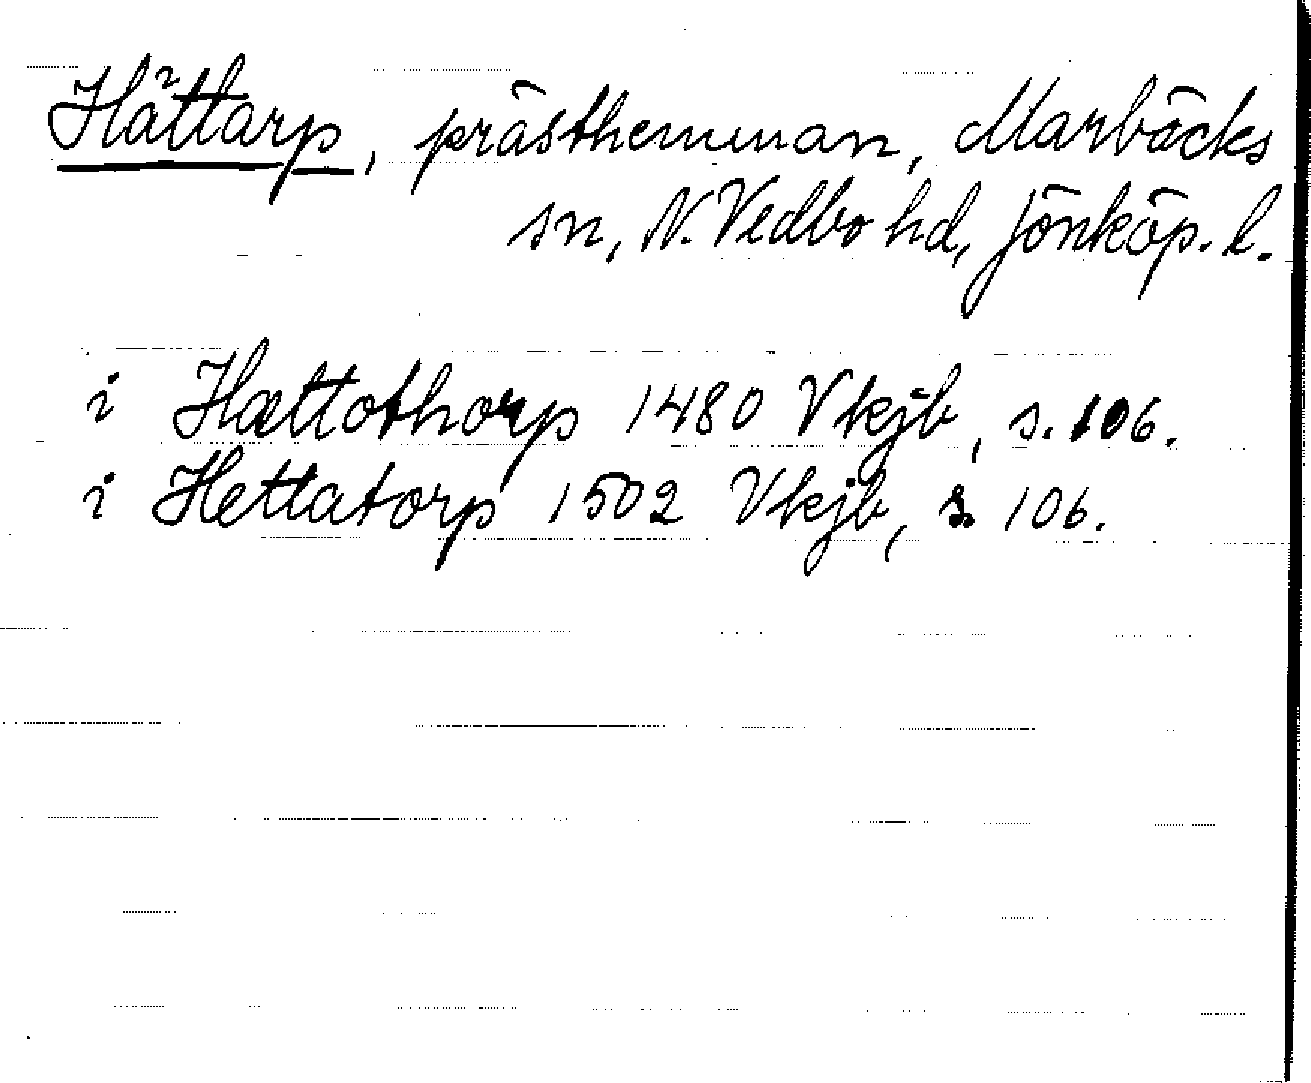 Hättarp, prästhemman, Marbäcks
sn, N. Vedbo hd, Jönköp. l.
i Hættothorp 1480 Vkjb, s. 106.
i Hettatorp 1502 Vkjb, s 106.